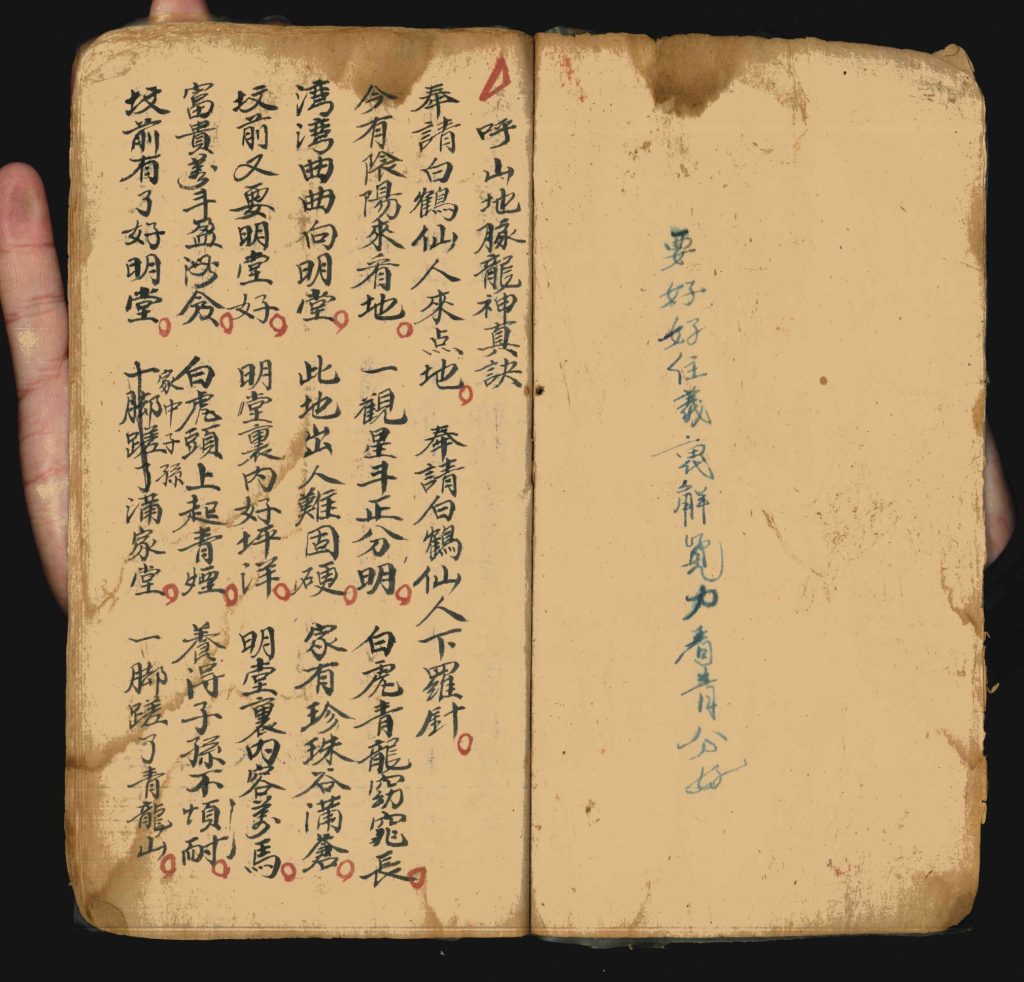 要好好住義解力看青分好
呼山地脉龍神真訣
奉請白鶴仙人來点地 奉請白鶴仙人下羅針
今有陰陽來看地 一觀星斗正分明 白虎青龍窈窕長
湾湾曲曲向明堂 此地出人難固硬 家有珍珠谷滿蒼
坟前又要明堂好 明堂裏内好坪洋 明堂裏内容萬馬
富貴萬斗盈 白虎頭上起青煙 養淂子孫不煩耐
坟前有了好明堂 家中子孫滿家堂 一脚蹉了青龍山